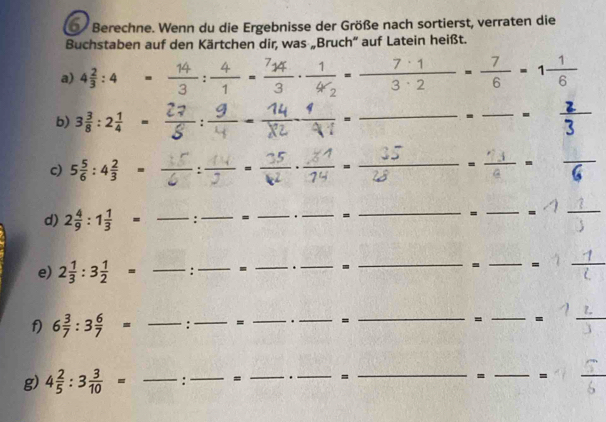 6 Berechne. Wenn du die Ergebnisse der Größe nach sortierst, verraten die
Buchstaben auf den Kärtchen dir, was „Bruch“ auf Latein heißt.
a) 4 2/3 : 4 = 14/3 : 4/1 = 7 14/3 · 1/4 2 = 7 · 1/3 · 2 = 7/6 = 1 1/6
b) 3 3/8 : 2 1/4 = 27/8 : 9/4 = = = = 2/3
c) 5 5/6 : 4 2/3 = 35/6 : 14/3 = 35 · 14 = 35/28 = = 6
d) 2 4/9 : 1 1/3 = : = · = = =
e) 2 1/3 : 3 1/2 = : = · = = = 1 1/2
f) 6 3/7 : 3 6/7 = : = · = = = 1 2/3
g) 4 2/5 : 3 3/10 = : = · = = = 5/6